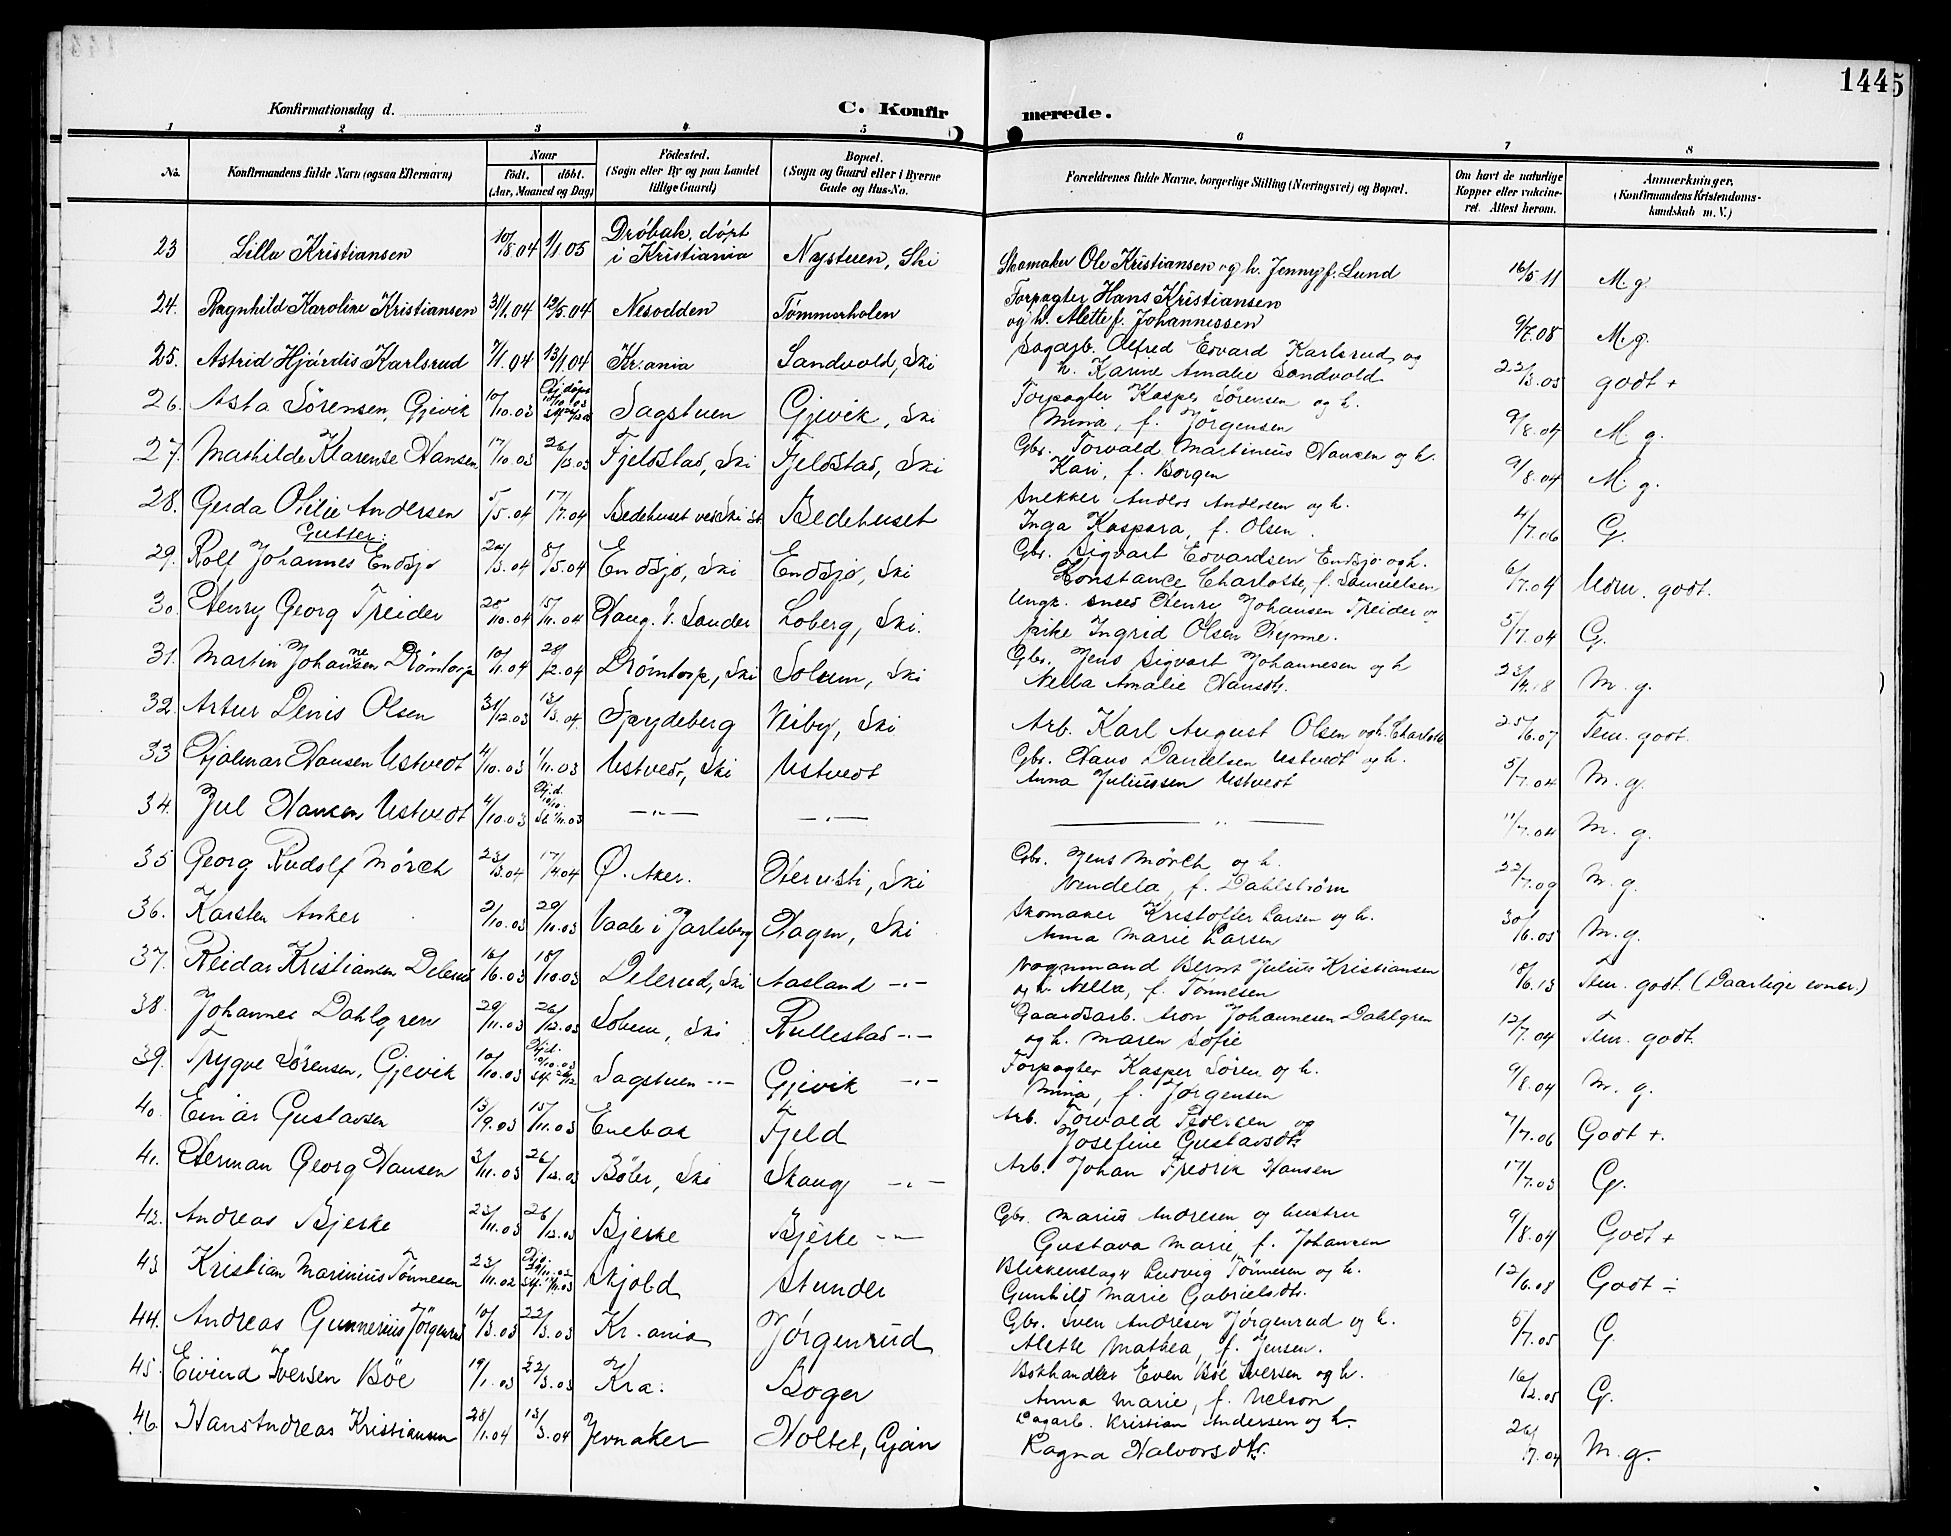 1445
Konfirmationsdag d. C. Konfirmerede.
1 2 3 4 5 6 7 8
No. Konfirmandens fulde Navn (ogsaa Efternavn) Naar født. døbt. (Aar, Maaned og Dag) Fødested. (Sogn eller By og paa Landet tillige Gaard) Bopæl. (Sogn og Gaard eller i Byerne Gade og Hus-No. Forældrenes fulde Navne, borgerlige Stilling (Næringsvei) og Bopæl. Om havt de naturlige Kopper eller vaksineret. Attest herom. Anmerkninger. (Konfirmandens Kristendomskundskab m. V.)
23 Lilla Kristiansen 10/8 04 1/1 05 Drøbak. døpt i Kristiania Nystuen, Ski Skomaker Ole Kristiansen og h. Jenny f. Lund 16/5 11 M. g
24. Ragnhild Karoline Kristiansen 3/1.04 12/5.04 Nesodden Tømmerholen Forpagter Hans Kristiansen og h. Alette f. Johannessen 9/7.08 M. g.
25. Astrid Hjørdis Karlsrud 7/1.04 13/1.04 Kr.ania Sandvold, Ski Sagarb. Alfred Edvard Karlsrud og h. Karine Amalie Sandvold 22/3.05 godt +
26. Asta Sörensen, Gjevik 10/10.03 Hj.døpt 10/10.03 Sagstuen Gjevik, Ski Forpagter Kasper Sørensen og h. Mina, f. Jörgensen 9/8.04 M. g.
27. Mathilde Klarense Hansen 17/10.03 26/12.03 Fjeldstad, Ski Fjeldstad, Ski Gbr. Torvald Martinius Hansen og h. Kari, f. Borgen 9/8.04 M. g.
28. Gerda Otilie Andersen 5/5.04 17/7.04 Bedehuset ved Ski st Bedehuset Snekker Anders Andersen og h. Inga Kaspara, f. Olsen. 4/7.06 G.
Gutter:
29. Rolf Johannes Endsjø 20/3.04 8/5.04 Endsjø, Ski Endsjø, Ski Gbr. Sigvart Edvardsen Endsjø og h. Konstance Charlotte, f. Samuelsen 6/7.04 Udm. godt.
30. Henry Georg Treider 28/10.04 15/11.04 Haug. V. Sander Loberg, Ski. Ungk. sned Henry Johansen Treider og pike Ingrid Olsen Rynne. 5/7.04 G.
31. Martin Johannesen Drömtorp 10/11.04 28/12.04 Drömtorp, Ski Solum, Ski Gbr. Jens Sigvart Johannesen og h Nella Amalie Hansdt. 23/4.18 M. g.
32. Artur Denis Olsen 31/12.03 13/3.04. Spydeberg Veiby, Ski Arb. Karl August Olsen og h. Charlotte 25/6.07 Tem. godt.
33 Hjalmar Hansen Ustvedt 4/10.03 1/11.03 Ustvedt, Ski Ustvedt Gbr. Hans Danielsen Ustvedt og h. Anna Juliussen Ustvedt 5/7.04 M. g.
34. Jul Hansen Ustvedt 4/10.03 Hj.d. 10/10. St 1/11.03 — „ — — „ — — „ — 11/7.04 M. g.
35 Georg Rudolf Mörch 23/3.04 17/4.04 Ø. Aker. Herusti, Ski Gbr. Jens Mørch og h. Vendela, f. Dahlstrøm 22/7.09 M. g.
36. Karsten Anker 2/10.03 29/10.03 Vaale i Jarlsberg Hagen, Ski Skomaker Kristoffer Larsen og h. Anna Marie Larsen 30/6.05 M. g.
37. Reidar Kristiansen Delerud 16/6.03 18/10.03 Delerud, Ski Aasland –„– Vognmand Bernt Julius Kristiansen og h. Nella, f. Tønnesen 18/6.13 Tem. godt. (Daarlige evner.)
38. Johannes Dahlgren 29/11.03 26/12.03 Solum, Ski Rullestad –„– Gaardsarb. Aron Johannesen Dahlgren og h. Maren Sofie 12/7.04 Tem. godt.
39. Trygve Sörensen, Gjevik 10/10.03 Hj.d. 10/10.03 Stf. 26/12 Sagstuen –„– Gjevik –„– Forpagter Kasper Sören og h. Mina, f. Jørgensen 9/8.04 M. g.
40. Einar Gustavsen 13/9.03 15/11.03 Enebak Fjeld Arb. Torvald Pedersen og Josefine Gustavsdt. 7/7.06 Godt +.
41. Herman Georg Hansen 3/11.03 26/12.03 Böler, Ski Skaug –„– Arb. Johan Fredrik Hansen 17/7.03 G.
42. Andreas Bjerke 23/11.03 26/12.03 Bjerke Bjerke –„– Gbr. Marius Andresen og hustru Gustava Marie, f. Johansen 9/8.04 Godt +
43 Kristian Marinius Tönnesen 23/11.02 Skjold Stunder Blikkenslager Ludvig Tönnesen og h. Gunhild Marie Gabrielsdt. 12/6.08 Godt ÷
44. Andreas Gunnerius Jörgenrud 10/3.03 22/3.03 Kr.ania Jørgenrud Gbr. Sven Andresen Jørgenrud og h. Alette Mathea, f. Jensen. 5/7.05 G.
45. Eivind Iversen Böe 19/1.03 22/3.03 Kra. Boger Bokhandler Even Böe Iversen og h. Anna Marie, f. Nelson 16/2.05 G.
46. Hans Andreas Kristiansen 28/1.04 13/3.04 Jevnaker Holtet, Gjan Sagarb. Kristian Andersen og h. Ragna Halvorsdt. 26/7.04 M. g.